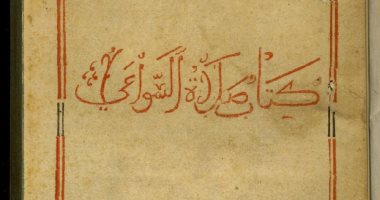 كتاب صلاة السَّواعي